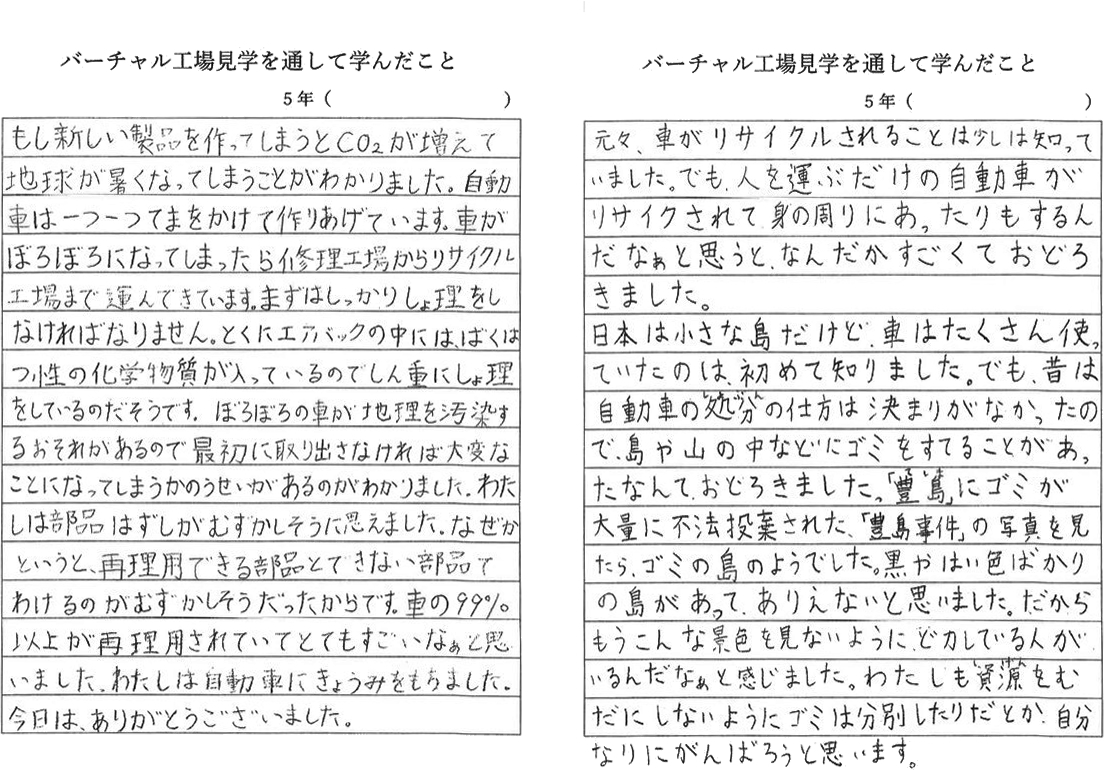 バーチャル工場見学を通して学んだこと
5年（　　　　　　　　）
もし新しい製品を作ってしまうとCO2が増えて
地球が暑くなってしまうことがわかりました。自動
車は一つ一つてまをかけて作りあげています。車が
ぼろぼろになってしまったら修理工場からリサイクル
工場まで運んできています。まずはしっかりしょ理をし
なければなりません。とくにエアバックの中には、ばくは
つ性の化学物質が入っているのでしん重にしょ理
をしているのだそうです。ぼろぼろの車が地理を汚染す
るおそれがあるので最初に取り出さなければ大変な
ことになってしまうかのうせいがあるのがわかりました。わた
しは部品はずしがむずかしそうに思えました。なぜか
というと、再理用できる部品とできない部品で
わけるのがむずかしそうだったからです。車の99%
以上が再理用されていてとてもすごいなぁと思
いました。わたしは自動車にきょうみをもちました。
今日は、ありがとうございました。
バーチャル工場見学を通して学んだこと
5年（　　　　　　　　）
元々、車がリサイクルされることは少しは知って
いました。でも、人を運ぶだけの自動車が
リサイクされて身の周りにあったりもするん
だなぁと思うと、なんだかすごくておどろ
きました。
日本は小さな島だけど、車はたくさん使っ
ていたのは、初めて知りました。でも、昔は
自動車の処分の仕方は決まりがなかったの
で、島や山の中などにゴミをすてることがあっ
たなんて、おどろきました。「豊島」にゴミが
大量に不法投棄された、「豊島事件」の写真を見
たら、ゴミの島のようでした。黒やはい色ばかり
の島があって、ありえないと思いました。だから
もうこんな景色を見ないように、ど力している人が
いるんだなぁと感じました。わたしも資源をむ
だにしないようにゴミは分別したりだとか、自分
なりにがんばろうと思います。